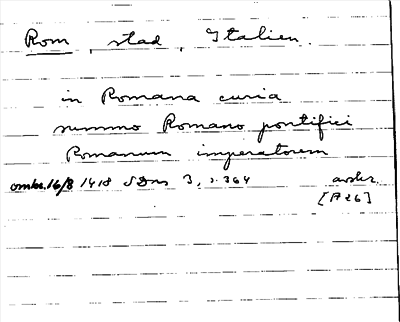 Rom, stad, Italien.
in Romana curia
summo Romano pontifici
Romanum imperatorem
omkr. 16/8 1418 SDns 3, s. 364 avskr.
[A 26]